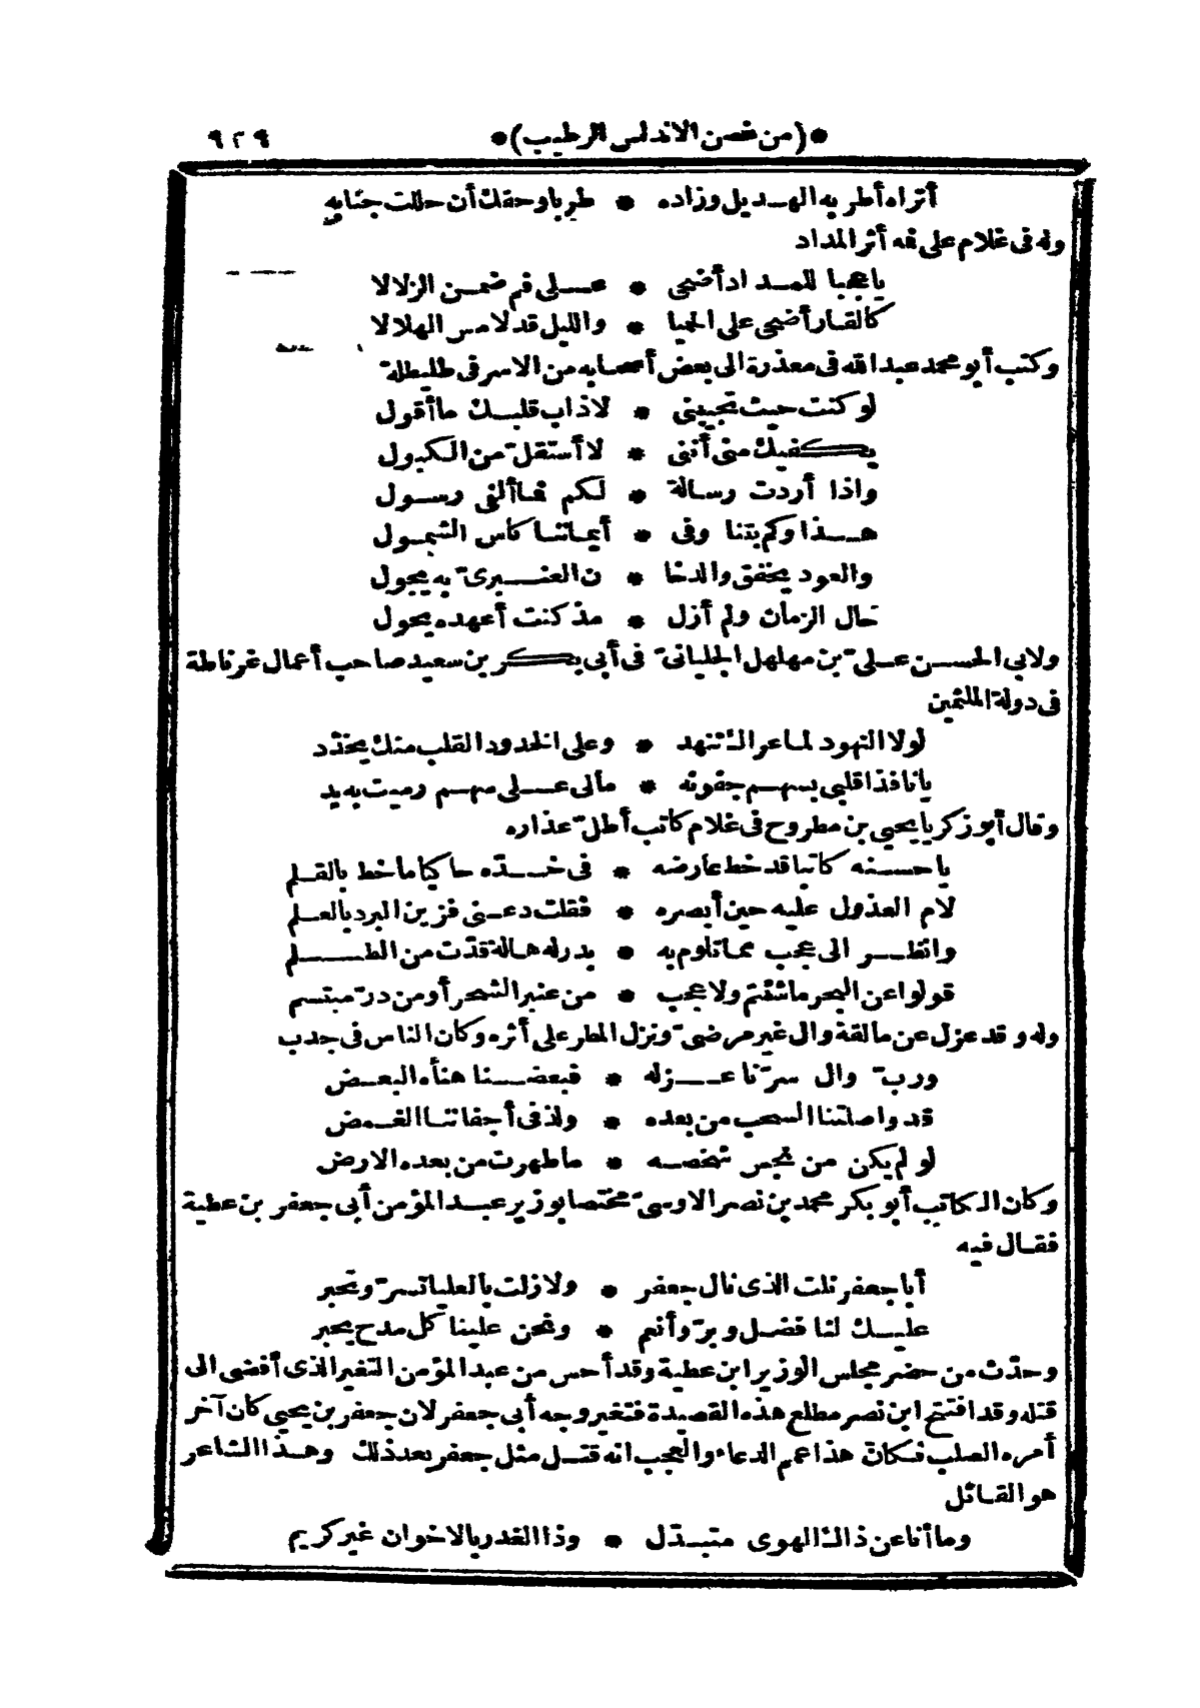 *(من غصن الاندلس الرطيب)* ٩٢٩
أتراه أطربه الهديل وزاده * طربا وحقك أن حللت جنابه
وله فى غلام على فمه أثر المداد
يا عجبا للمداد أضحى * على فم ضمن الزلالا
كالقار أضحى على الحميا * والليل قد لامس الهلالا
وكتب أبو محمد عبد الله فى معذرة الى بعض أصحابه من الاسر فى طليطلة
لو كنت حيث تجيبنى * لاذاب قلبك ما أقول
يكفيك منى أننى * لا أستقل من الكبول
واذا أردت رسالة * لكم فما ألفى رسول
هذا وكم بتنا وفى * أيماننا كاس الشمول
والعود يخفق والدخا * ن العنبرىّ به يجول
حال الزمان ولم أزل * مذ كنت أعهده يحول
ولابى الحسن علىّ بن مهلهل الجليانىّ فى أبى بكر بن سعيد صاحب أعمال غرناطة
فى دولة الملثمين
لولا النهود لما عراك تنهد * وعلى الخدود القلب منك يخدّد
يا نافذا قلبى بسهم جفونه * مالى على سهم رميت به يد
وقال أبو زكريا يحيى بن مطروح فى غلام كاتب أطلّ عذاره
يا حسنه كاتبا قد خط عارضه * فى خدّه حاكيا ما خط بالقلم
لام العذول عليه حين أبصره * فقلت دعنى فزين البرد بالعلم
وانظر الى عجب مما تلوم به * بدر له هالة قدّت من الظلم
قولوا عن البحر ما شئتم ولا عجب * من عنبر الشحر أو من درّ مبتسم
وله وقد عزل عن مالقة وال غير مرضىّ ونزل المطر على أثره وكان الناس فى جدب
وربّ وال سرّنا عزله * فبعضنا هنأه البعض
قد واصلتنا السحب من بعده * ولذ فى أجفاننا الغمض
لو لم يكن من نجس شخصه * ما طهرت من بعده الارض
وكان الكاتب أبو بكر محمد بن نصر الاوسىّ مختصا بوزير عبد المؤمن أبى جعفر بن عطية
فقال فيه
أبا جعفر نلت الذى نال جعفر * ولا زلت بالعليا تسرّ وتحبر
عليك لنا فضل وبرّ وأنعم * ونحن علينا كل مدح يحبر
وحدّث من حضر مجلس الوزير ابن عطية وقد أحس من عبد المؤمن التغير الذى أفضى الى
قتله وقد افتتح ابن نصر مطلع هذه القصيدة فتغير وجه أبى جعفر لان جعفر بن يحيى كان آخر
أمره الصلب فكان هذا عم الدعاء والعجب انه قتل مثل جعفر بعد ذلك وهذا الشاعر
هو القائل
وما أنا عن ذاك الهوى متبدّل * وذا الغدر بالاخوان غير كريم